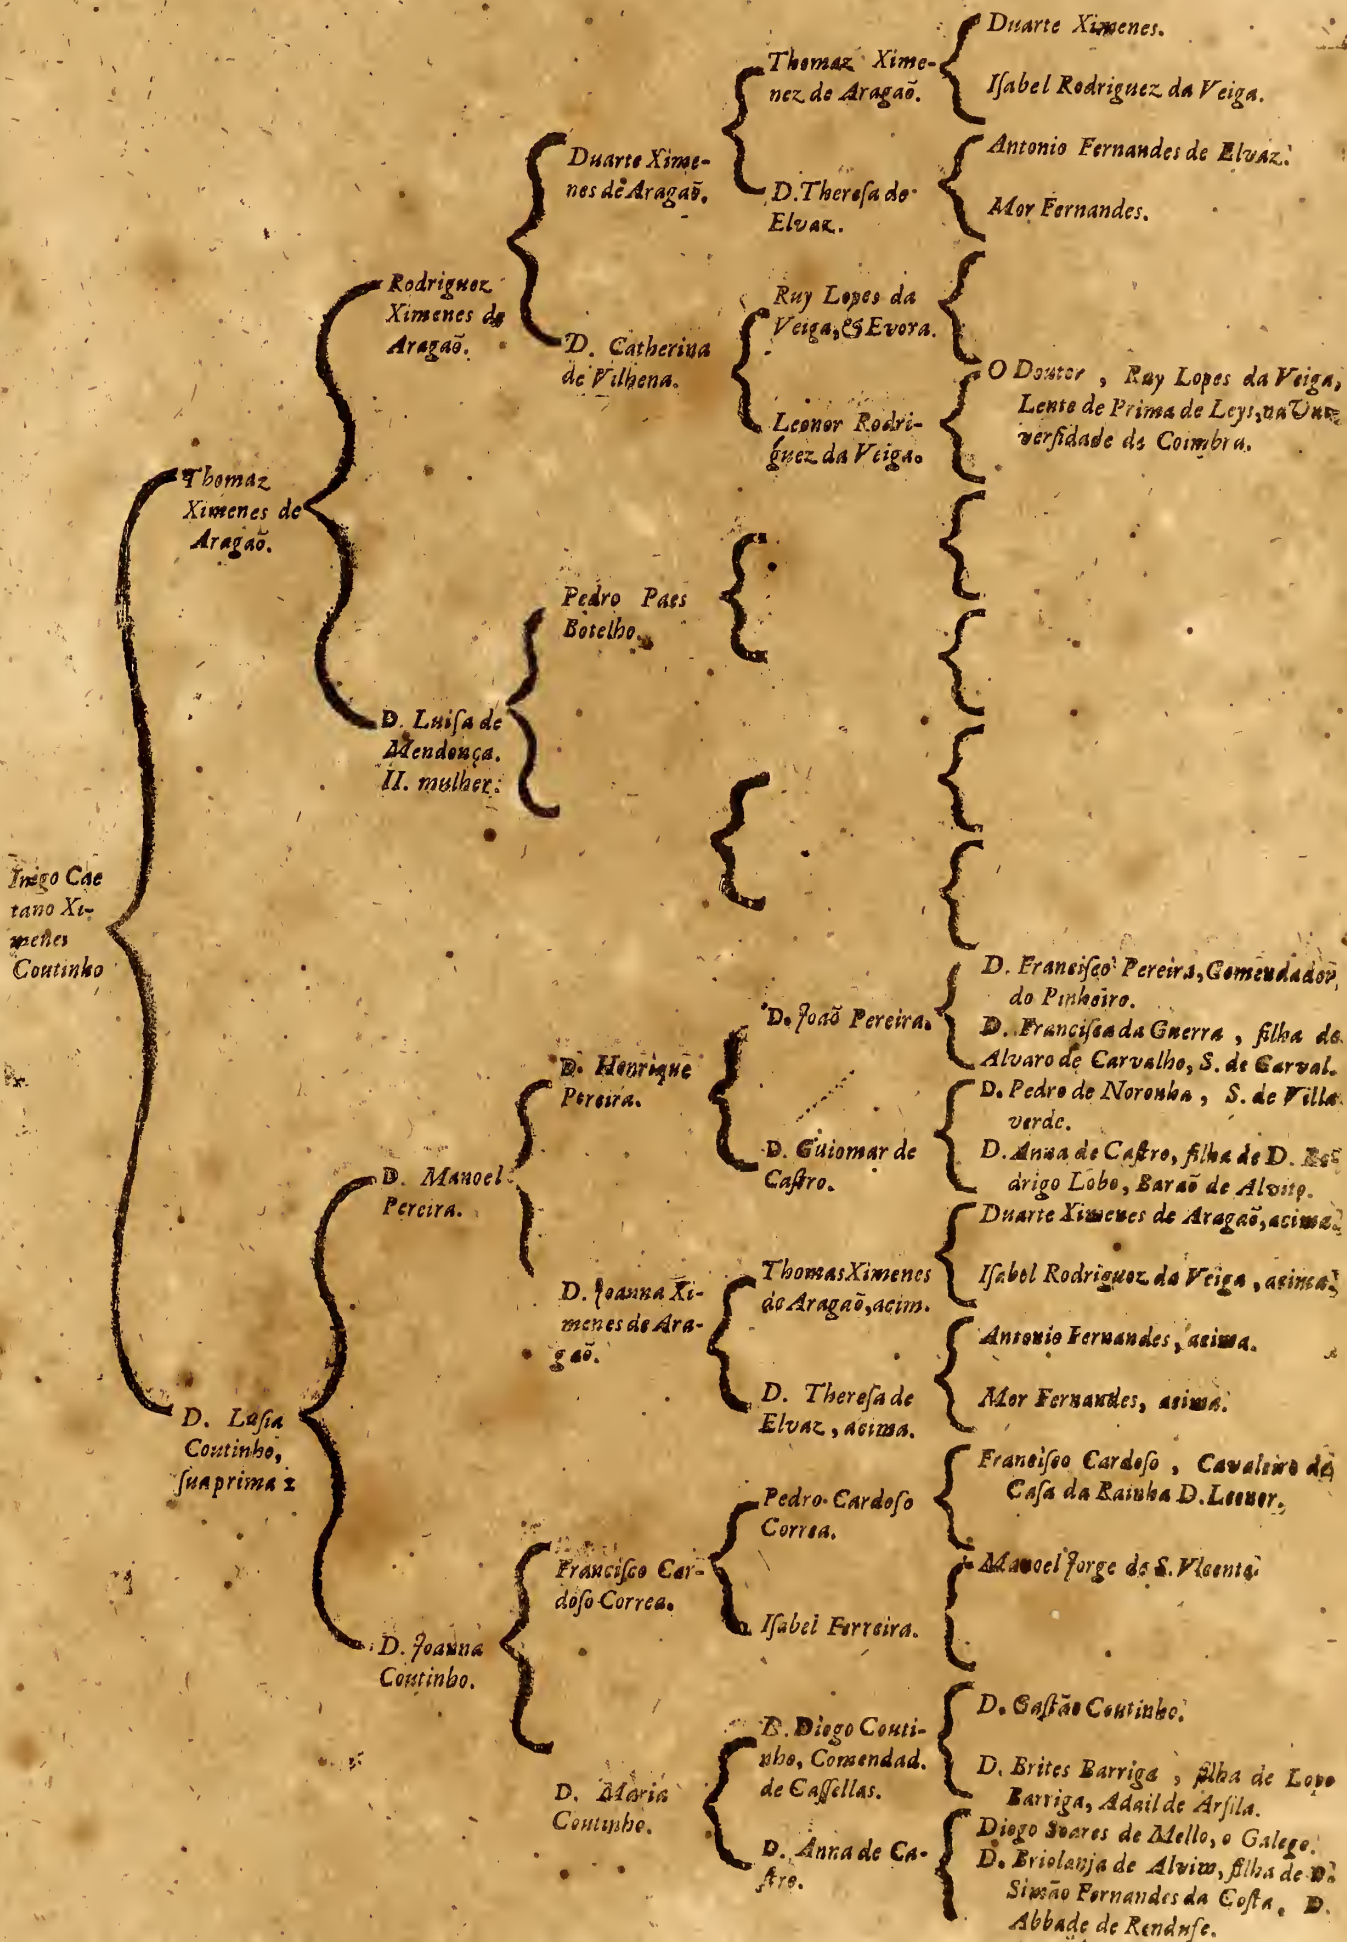 Inigo Cae
tano Xi-
menes
Coutinho
Thomaz
Ximenes de
Aragaõ.
D. Lusia
Coutinho,
ſua prima
Rodriguez
Ximenes de
Aragaõ.
D. Luiſa de
Mendonça.
II. mulher.
D. Manoel
Pereira.
D. Joanna
Coutinho.
Duarte Xime-
nes de Aragaõ.
D. Catherina
de Vilhena.
Pedro Paes
Botelho.
D. Henrique
Pereira.
D. Joanna Xi-
menes de Ara-
gaõ.
Franciſco Car-
doſo Correa.
D. Maria
Coutinho.
Thomaz Xime-
nez de Aragaõ.
D. Thereſa de
Elvaz.
Ruy Lopes da
Veiga, & Evora.
Leonor Rodri-
guez da Veiga.
D. Joaõ Pereira.
D. Guiomar de
Caſtro.
Thomas Ximenes
de Aragaõ, acim.
D. Thereſa de
Elvaz, acima.
Pedro Cardoſo
Correa.
Iſabel Ferreira.
D. Diogo Couti-
nho, Comendad.
de Caſſellas.
D. Anna de Ca-
ſtro.
Duarte Ximenes.
Iſabel Rodriguez da Veiga.
Antonio Fernandes de Elvaz.
Mor Fernandes.
O Doutor, Ruy Lopes da Veiga,
Lente de Prima de Leys, na Uni-
verſidade de Coimbra.
D. Franciſco Pereira, Comendador
do Pinheiro.
D. Franciſca da Guerra, filha de
Alvaro de Carvalho, S. de Carval.
D. Pedro de Noronha, S. de Villa
verde.
D. Anna de Caſtro, filha de D. Ro-
drigo Lobo, Baraõ de Alvito.
Duarte Ximenes de Aragaõ, acima.
Iſabel Rodriguez da Veiga, acima.
Antonio Fernandes, acima.
Mor Fernandes, acima.
Franciſco Cardoſo, Cavaleiro da
Caſa da Rainha D. Leonor.
Manoel Jorge de S. Vicente.
D. Gaſtão Coutinho.
D. Brites Barriga, filha de Lopo
Barriga, Adail de Arſila.
Diogo Soares de Mello, o Galego.
D. Briolanja de Alvim, filha de D.
Simão Fernandes da Coſta, D.
Abbade de Renduſe.